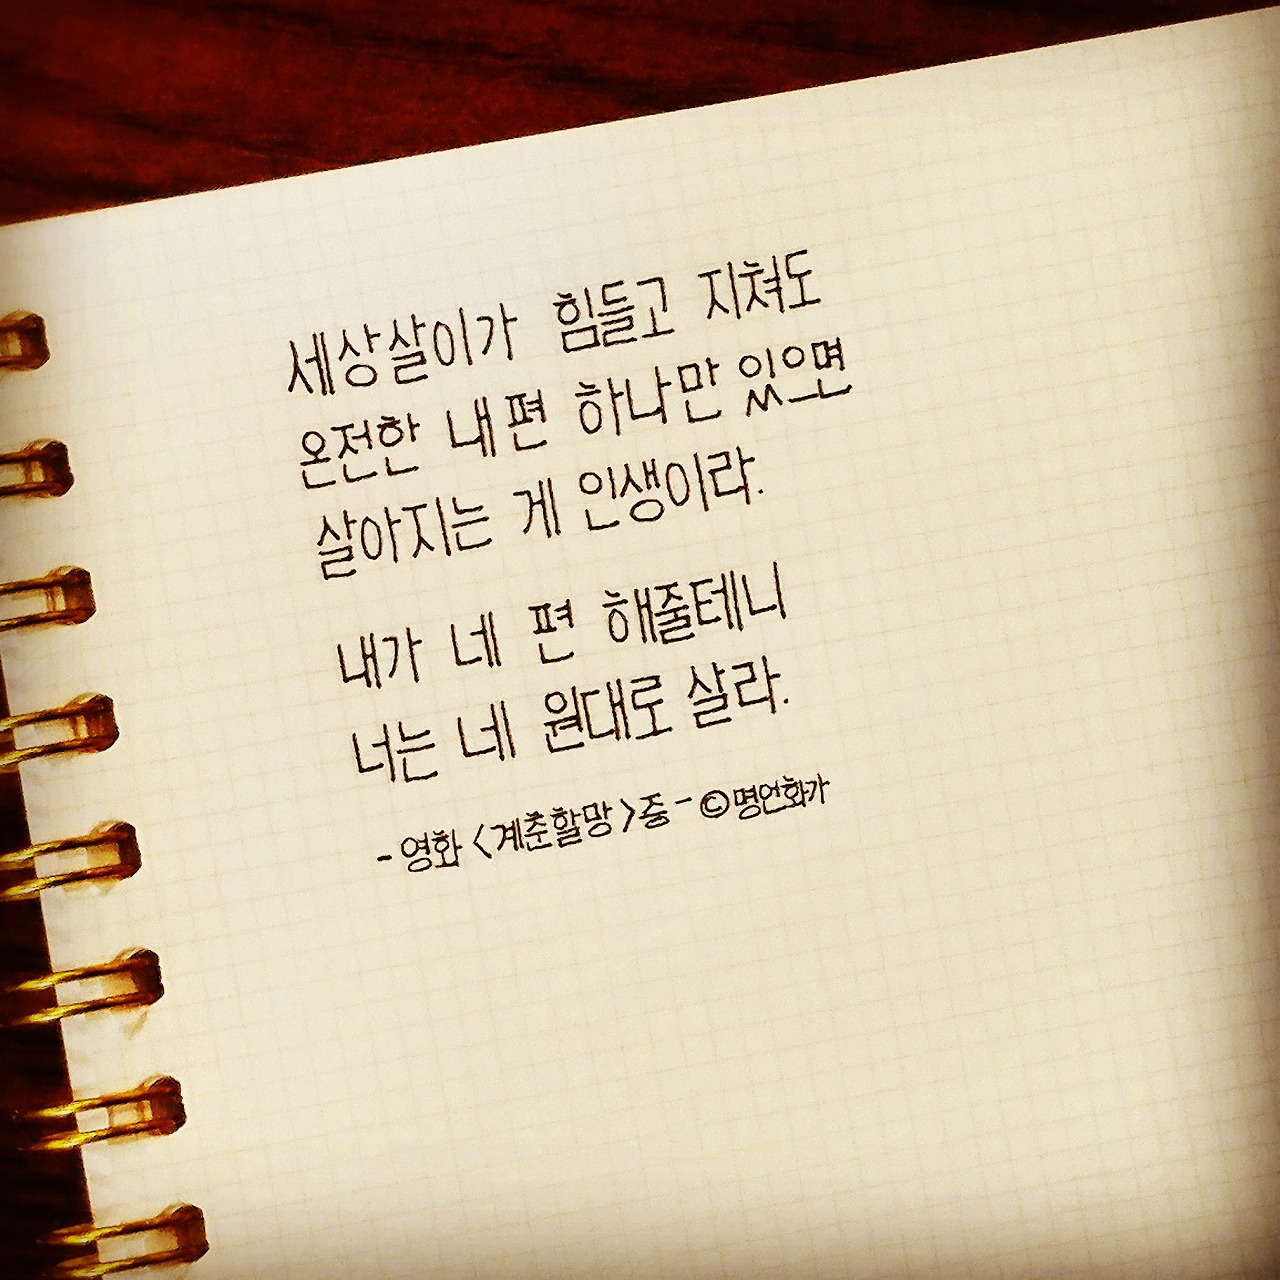 세상살이가 힘들고 지쳐도
온전한 내편 하나만 있으면
살아지는 게 인생이라.
내가 네 편 해줄테니
너는 네 원대로 살라.
- 영화 <계춘할망>중 - ©명언화가